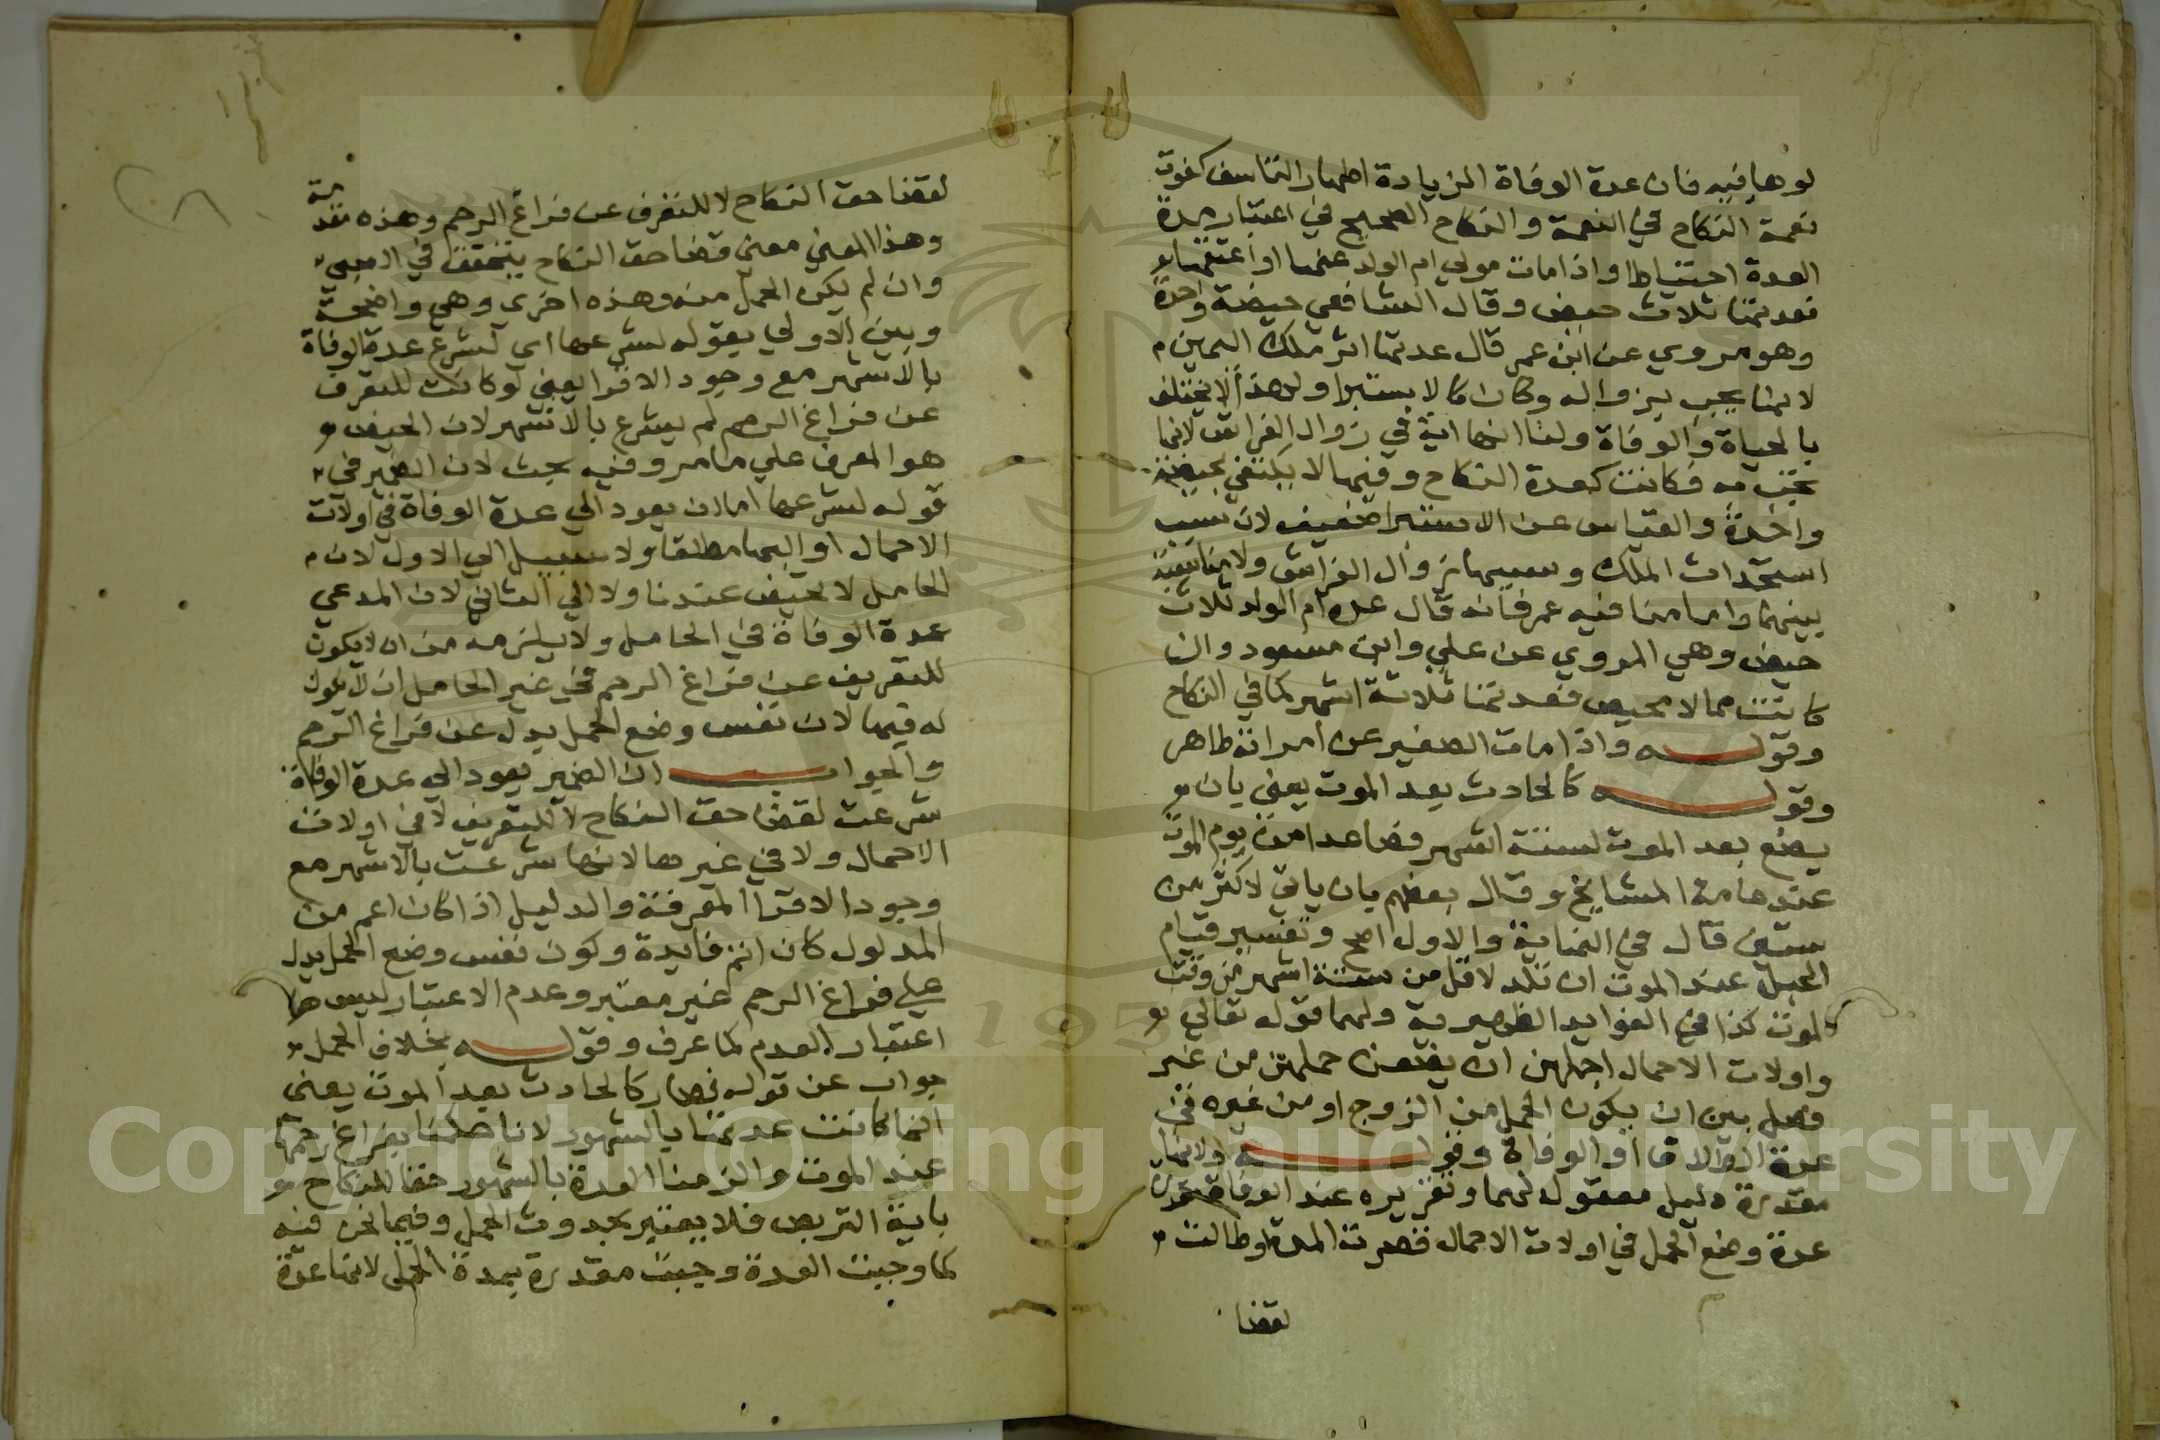 لوهافيه فان عدة الوفاة الزيادة اظهار التاسف كفوت
نعمة النكاح في النعمة والنكاح الصحيح في اعتبار عدة
العدة احتياطا واذا مات مولي ام الولد عنها او اعتقها
فعدتها ثلاث حيض وقال الشافعي حيضة واحدة
وهو مروي عن ابن عمر قال عدتها اثر ملك اليمين
لانها يجب بزواله وكان كالاستبرا ولهذا لا يختلف
بالحياة والوفاة ولنا انها اية في زوال الفراش لانها
تجب به فكانت كعدة النكاح وفيها لا يكتفي بحيضة
واحدة والقياس عن الاستبرا ضعيف لان سبب
استحداث الملك وسببها زوال الفراش ولا مناسبة
بينهما وامامنا فيه عمر فانه قال عدة ام الولد ثلاث
حيض وهي المروي عن علي وابن مسعود وان
كانت مما لا تحيض فعدتها ثلاثة اشهر كما في النكاح
وقوله واذا مات الصغير عن امراته ظاهر
وقوله كالحادث بعد الموت يعني بان
يضع بعد الموت لستة اشهر فصاعدا من يوم الموت
عند عامة المشايخ وقال بعضهم بان ياتي لاكثر من
سنتين قال في النهاية والاول اصح وتفسير قيام
الحبل عند الموت ان تلد لاقل من ستة اشهر من وقت
الموت كذا في الفوايد الظهيرية ولهما قوله تعالي
واولات الاحمال اجلهن ان يضعن حملهن من غير
فصل بين ان يكون الحمل من الزوج او من غيره في
عدة الطلاق او الوفاة وقوله ولانها
مقدرة دليل معقول لهما وتقريره عند الوفاة مقدرة
عدة وضع الحمل في اولات الاحمال قصرت المدة او طالت
لقضا
لقضا حق النكاح لا للتعرف عن فراغ الرحم وهذه مقدمة
وهذا المعني معني قضا حق النكاح يتحقق في الصبي
وان لم يكن الحمل منه وهذه اخري وهي واضحة
وبين الاولي بقوله لشرعها اي لشرع عدة الوفاة
بالاشهر مع وجود الاقرا يعني لو كانت للتعرف
عن فراغ الرحم لم يشرع بالاشهر لان الحيض
هو المعرف علي ما مر وفيه بحث لان الضمير في
قوله لشرعها اما ان يعود الي عدة الوفاة في اولات
الاحمال او اليها مطلقا ولا سبيل الي الاول لان
الحامل لا تحيض عندنا ولا الي الثاني لان المدعي
عدة الوفاة في الحامل ولا يلزمه من ان لا يكون
للتعريف عن فراغ الرحم في غير الحامل ان لا يكون
له فيها لان نفس وضع الحمل يدل عن فراغ الرحم
والجواب ان الضمير يعود الي عدة الوفاة
شرعت لقضا حق النكاح لا للتعريف لا في اولات
الاحمال ولا في غيرها لانها شرعت بالاشهر مع
وجود الاقرا المعرفة والدليل اذا كان اعم من
المدلول كان اتم فايدة وكون نفس وضع الحمل يدل
علي فراغ الرحم غير معتبر وعدم الاعتبار ليس
اعتبار العدم كما عرف وقوله بخلاف الحمل
جواب عن قوله فصار كالحادث بعد الموت يعني
انما كانت عدتها بالشهور لانا حكمنا بفراغ رحمها
عند الموت والزمنا العدة بالشهور حقا للنكاح
باية التربص فلا يعتبر بحدوث الحمل وفيما نحن فيه
كما وجبت العدة وجبت مقدرة بمدة الحمل لانها عدة